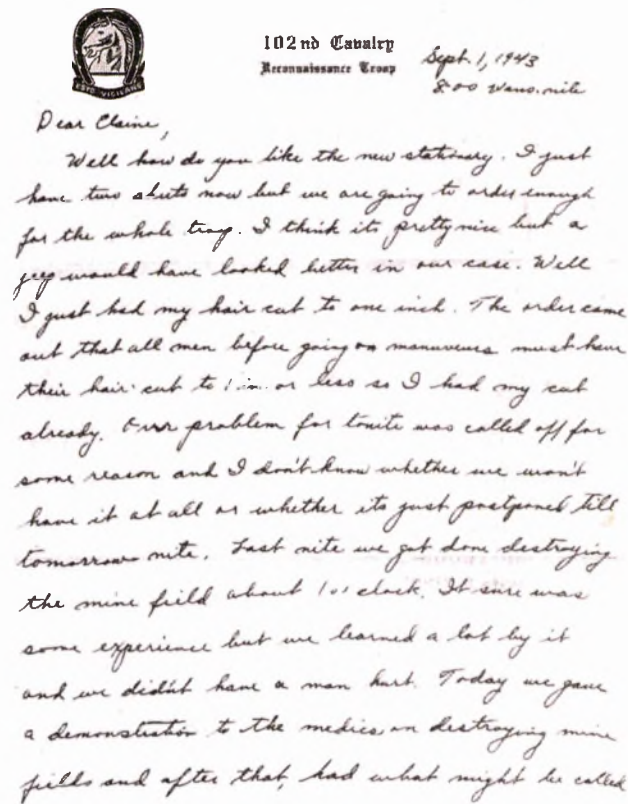 102nd Cavalry
Reconnaissance Troop
ESTO VIGILANS
Sept. 1, 1943
8:00 Wens. nite
Dear Elaine,
Well how do you like the new stationary. I just
have two sheets now but we are going to order enough
for the whole troop. I think its pretty nice but a
jeep would have looked better in our case. Well
I just had my hair cut to one inch. The order came
out that all men before going on manuvers must have
their hair cut to 1 in. or less so I had my cut
already. Our problem for tonite was called off for
some reason and I don't know whether we won't
have it at all or whether its just postponed till
tomorrow nite. Last nite we got done destroying
the mine field about 1 o'clock. It sure was
some experience but we learned a lot by it
and we didn't have a man hurt. Today we gave
a demonstration to the medics on destroying mine
fields and after that, had what might be called